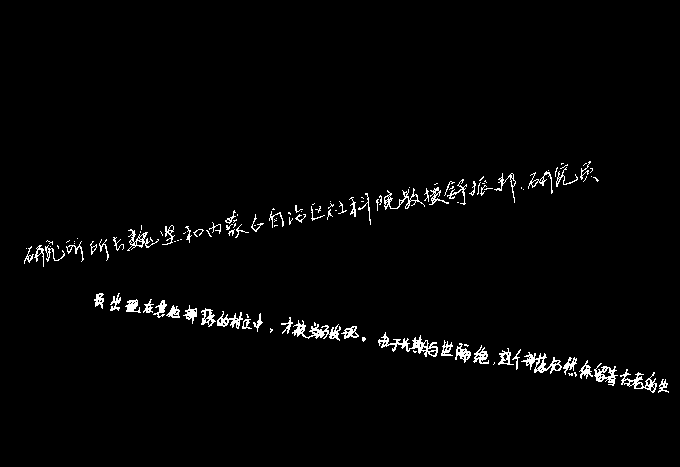 研究所所长魏坚和内蒙古自治区社科院教授舒振邦、研究员
员出现在其他部落的村庄中，才被当局发现。由于长期与世隔绝，这个部落仍然保留着古老的生